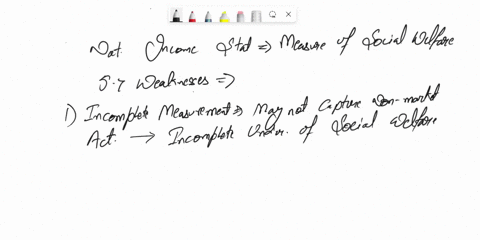 Nat. Income Stat ⇒ Measure of Social Welfare
5.7 Weaknesses ⇒
1) Incomplete Measurement ⇒ May not Capture Non-market
Act. → Incomplete Under. of Social Welfare